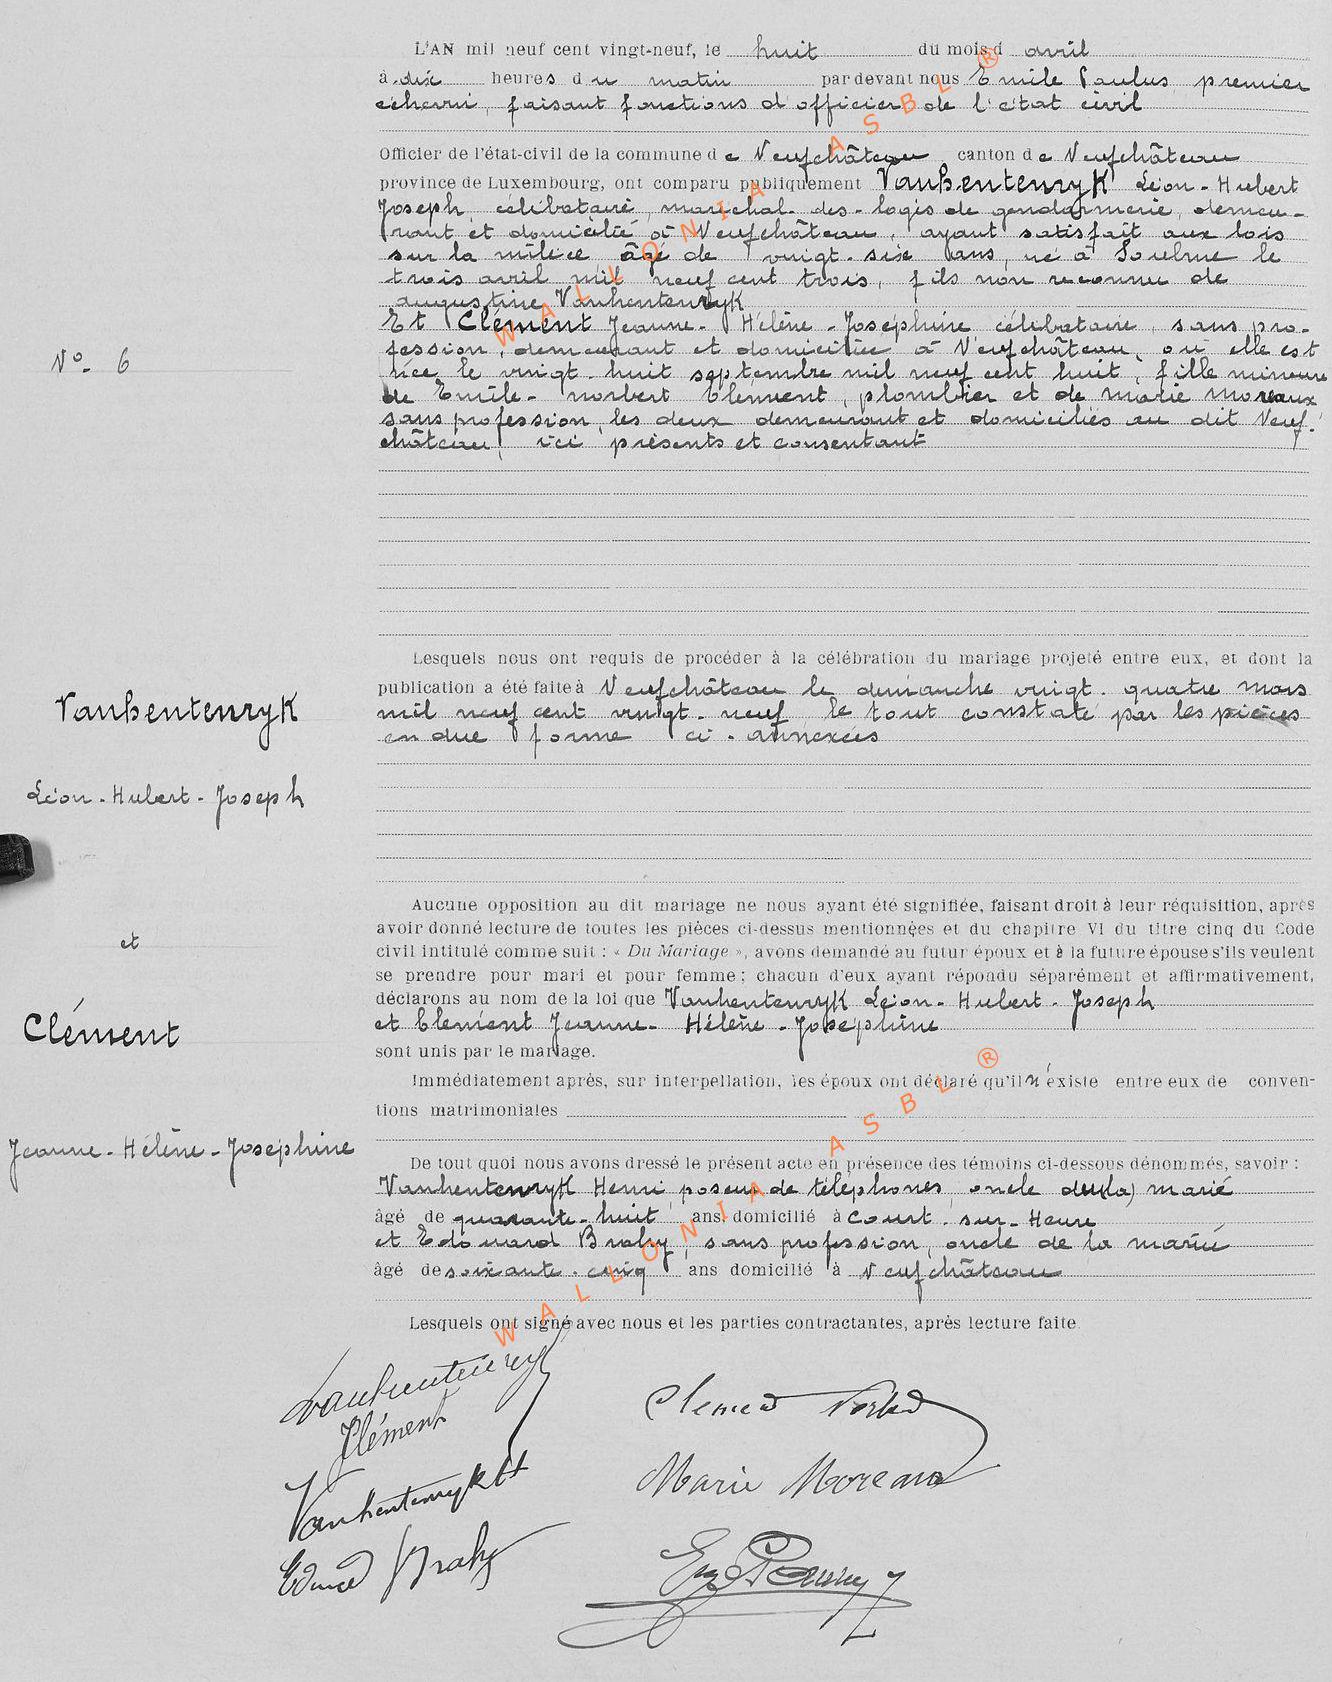 L'AN mil neuf cent vingt-neuf, le huit du mois d avril
à dix heures du matin par devant nous Emile Paulus premier
échevin, faisant fonctions d'officier de l'état civil
Officier de l'état-civil de la commune de Neufchâteau canton de Neufchâteau
province de Luxembourg, ont comparu publiquement Vanhentenryk Léon-Hubert
Joseph, célibataire, maréchal-des-logis de gendarmerie, demeu-
rant et domicilié à Neufchâteau, ayant satisfait aux lois
sur la milice âgé de vingt-six ans, né à Soulme le
trois avril mil neuf cent trois, fils non reconnu de
Augustine Vanhentenryk
Et Clément Jeanne-Hélène-Joséphine célibataire, sans pro-
fession, demeurant et domiciliée à Neufchâteau, où elle est
née le vingt-huit septembre mil neuf cent huit, fille mineure
de Emile-Norbert Clément, plombier et de Marie Moreaux
sans profession, les deux demeurant et domiciliés au dit Neuf-
château, ici présents et consentant
N° 6
Lesquels nous ont requis de procéder à la célébration du mariage projeté entre eux, et dont la
publication a été faite à Neufchâteau le dimanche vingt-quatre mars
mil neuf cent vingt-neuf, le tout constaté par les pièces
en due forme ci-annexées
Vanhentenryk
Léon-Hubert-Joseph
et
Clément
Jeanne-Hélène-Joséphine
Aucune opposition au dit mariage ne nous ayant été signifiée, faisant droit à leur réquisition, après
avoir donné lecture de toutes les pièces ci-dessus mentionnées et du chapitre VI du titre cinq du Code
civil intitulé comme suit : « Du Mariage », avons demandé au futur époux et à la future épouse s'ils veulent
se prendre pour mari et pour femme; chacun d'eux ayant répondu séparément et affirmativement,
déclarons au nom de la loi que Vanhentenryk Léon-Hubert-Joseph
et Clément Jeanne-Hélène-Joséphine
sont unis par le mariage.
Immédiatement après, sur interpellation, les époux ont déclaré qu'il n'existe entre eux de conven-
tions matrimoniales
De tout quoi nous avons dressé le présent acte en présence des témoins ci-dessous dénommés, savoir :
Vanhentenryk Henri poseur de téléphones, oncle du marié
âgé de quarante-huit ans domicilié à Court-sur-Heure
et Edouard Brahy, sans profession, oncle de la mariée
âgé de soixante-cinq ans domicilié à Neufchâteau
Lesquels ont signé avec nous et les parties contractantes, après lecture faite.
Vanhentenryk
Clément
Clement Norbert
Vanhentenryk H
Marie Moreaux
Edouard Brahy
WALLONIA ASBL ®
WALLONIA ASBL ®